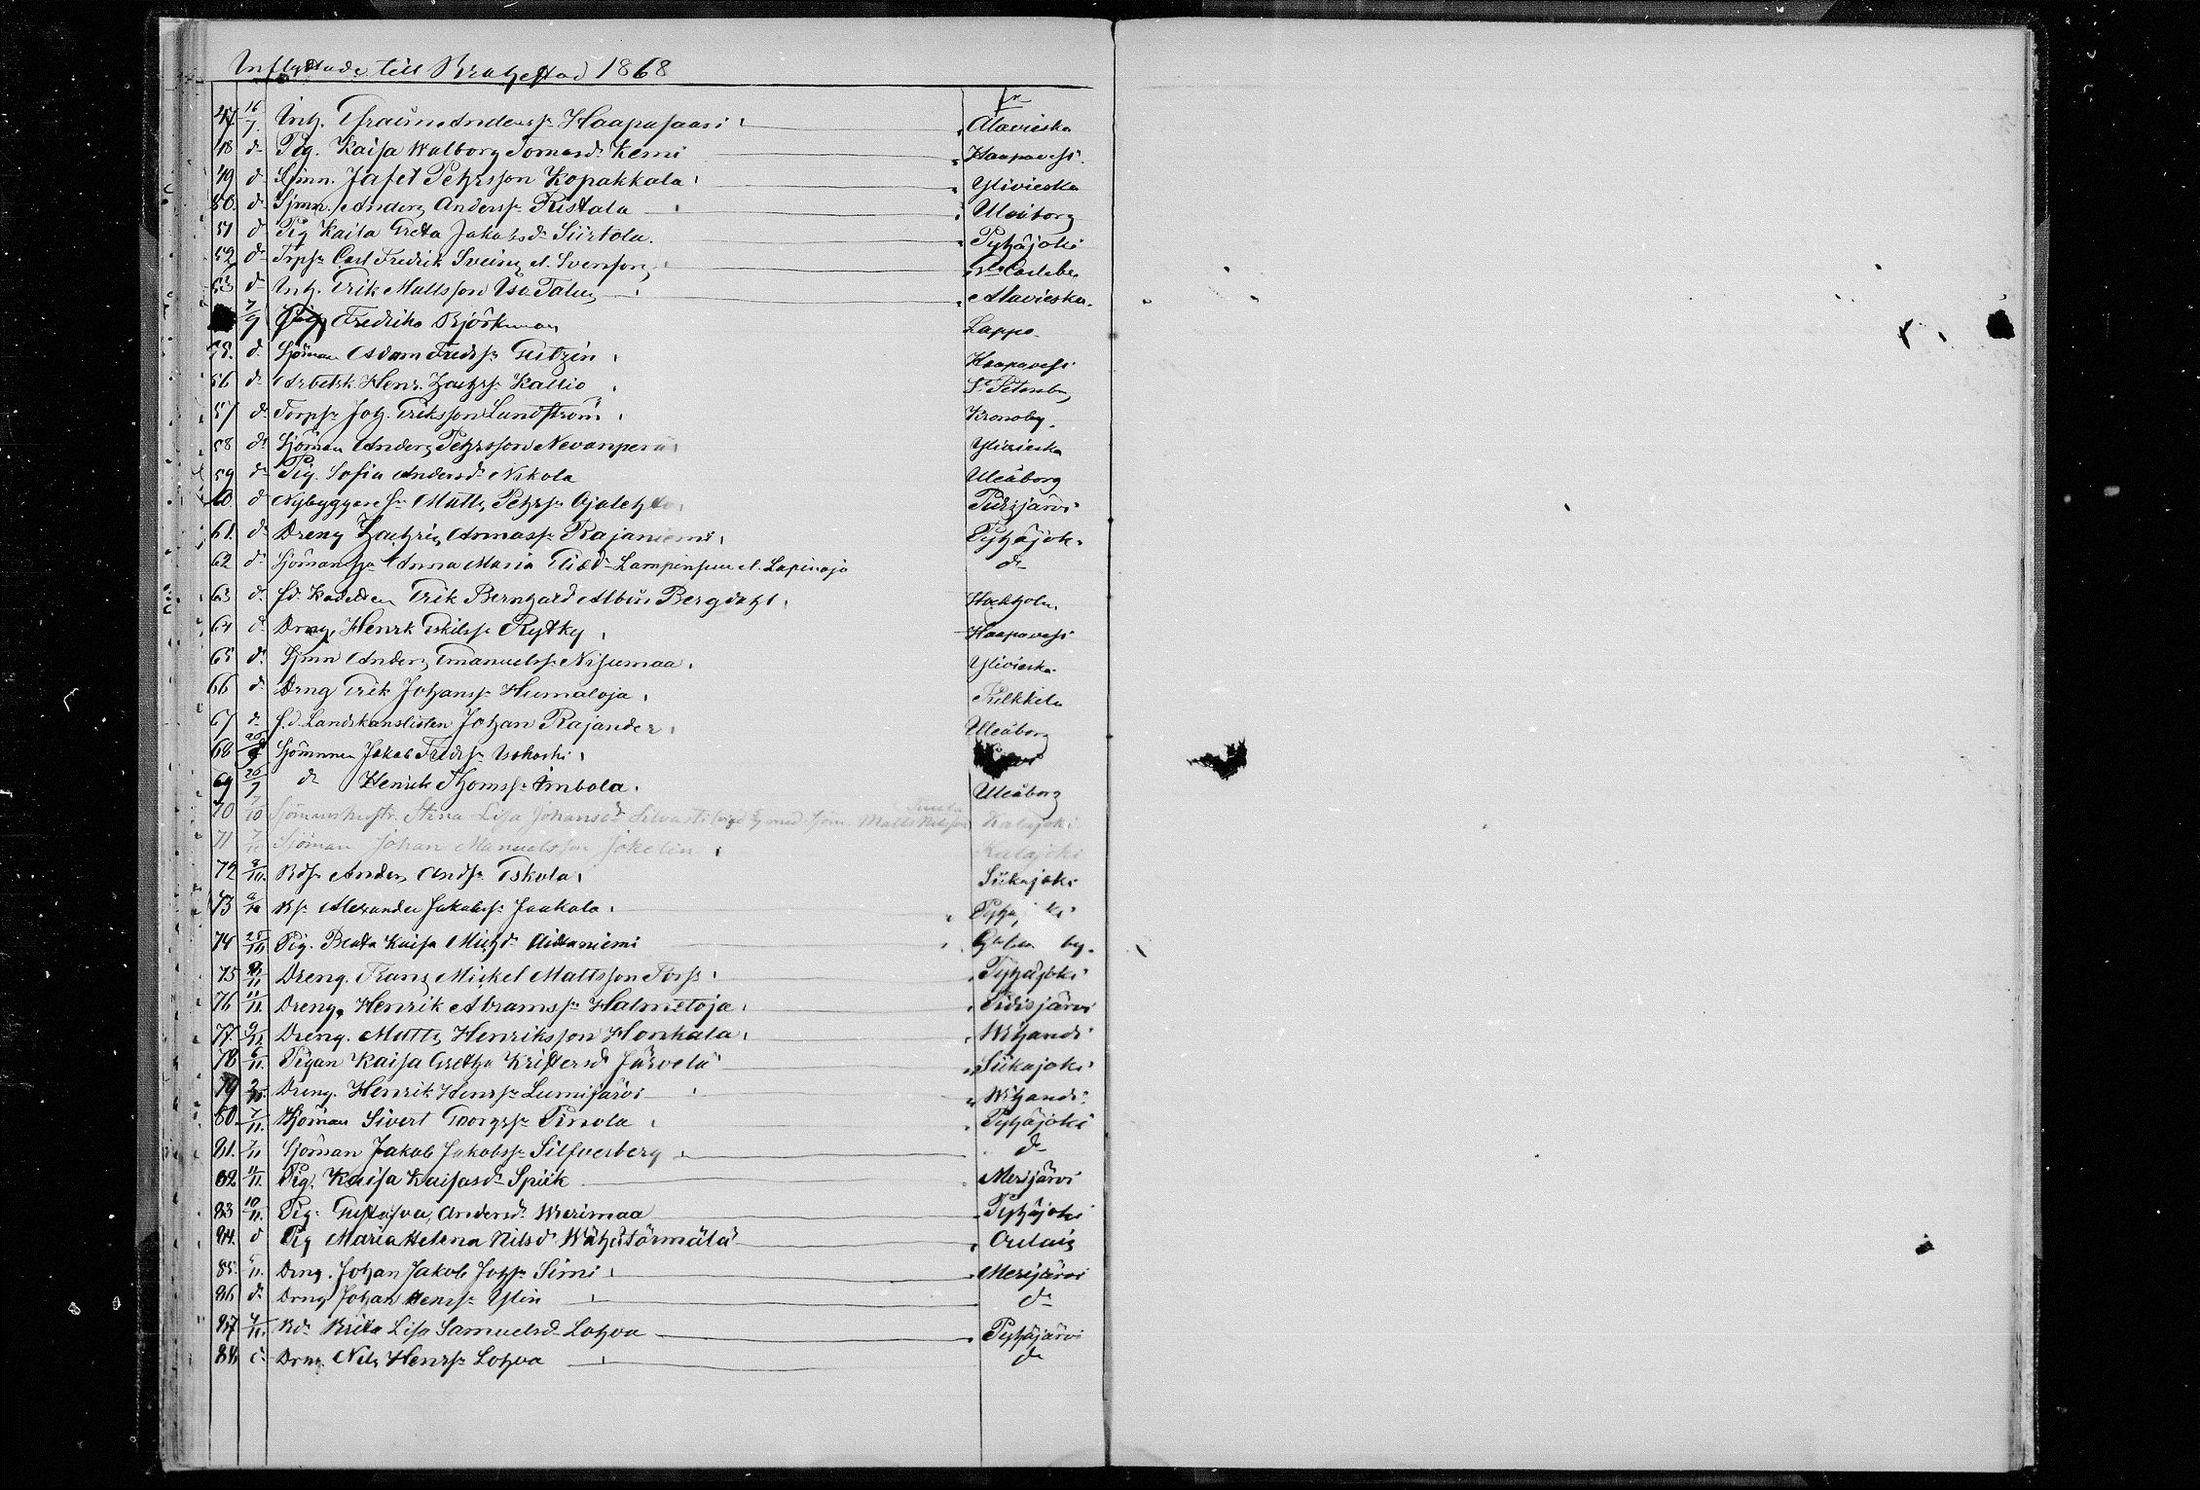 Inflyttade till Brahestad 1868
fr
47 16/7. Inh. Erich Anderss. Haapasaari Alavieska
48 do Pig. Kaisa Walborg Tomasdr Kemi Haapavesi.
49 do Sjmn. Jafet Pehrsson Kopakkala Ylivieska
50. do Sjmn. Anders Anderss. Ristala Uleåborg
51 do Pig Kaisa Greta Jakobsdr Siirtola. Pyhäjoki
52 do Torpsn Carl Fredrik Sveins el. Svensson Carleby
53 do Inh. Erik Mattsson Iso Talus Alavieska.
7/9 Fredrika Björkman Lappo.
55. do Sjöman Adam Fredrss. Haapavesi
56 do Arbetsk. Henr. Zachrss. Kallio St Petersb.
57 do Torpsn Joh. Eriksson Lundström Kronoby.
58 do Sjöman Anders Pehrsson Nevanperä Ylivieska
59 do Pig. Sofia Andersdr Nikola Uleåborg
60 do Nybyggaresn Matts Pehrss. Ojalehto Pidisjärvi
61. do Dreng Zachris Rajaniemi Pyhäjoki
62 do Anna Maria Eliedr el. Lapinoja do
63 do fd. Kadetten Erik Bernhard Albin Bergdahl Stockholm
64 do Dreng Henrik Eskilss. Rytky Haapavesi
65 do Sjmn Anders Emanuelss. Nisumaa. Ylivieska
66 do Dreng Erik Johanss. Humaloja
67 do f.d. Landskanslisten Johan Rajander Uleåborg
68 Sjömannen Jakob Fredrss. Isokoski
69 26/9 do Henrik Thomss. Uleåborg
70 7/10 Sjömanshustr. Anna Lisa Johansdr Silvasti med Sjöm. Matts Nilsson Kalajoki
71 7/10 Sjöman Johan Manuelsson Jokelin Kalajoki
72 8/10. Anders Andss. Eskola Siikajoki
73 Alexander Jakobss. Jaakola Pyhäjoki
74 25/10 Pig. Beata Kaisa Michdr
75 Dreng. Frans Mickel Mattsson Forss Pyhäjoki
76 11/11. Dreng. Henrik Abramss. Halmetoja Pidisjärvi
77. Dreng. Matts Henriksson Honkala Wihandi
78 6/11. Pigan Kaisa Gretha Kristersdr Järvelä Siikajoki
79 Dreng. Henrik Henrss. Lumijärvi Wihandi
80. 7/11. Sjöman Sivert Georgss. Pirnola Pyhäjoki
81. 7/11 Sjöman Jakob Jakobss. Silfverberg do
82. 11/11. Pig. Kaisa Kaisasdr Spiik Merijärvi
83 10/11. Pig. Gustava, Andersdr Pyhäjoki
84. do Pig Maria Helena Nilsdr Wähätörmälä Oulais
85. 5/11. Dreng. Johan Jakob Johss. Simi Merijärvi
86 do Dreng Johan Henrss. Ylin do
87 4/11. Brita Lisa Samuelsdr Lohva Pyhäjärvi
88. do Dreng. Nils Henrss. Lohva do